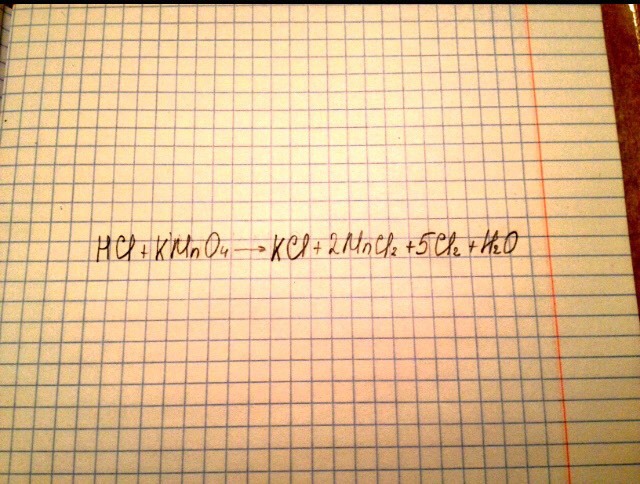 HCl + KMnO₄ ⟶ KCl + 2MnCl₂ + 5Cl₂ + H₂O